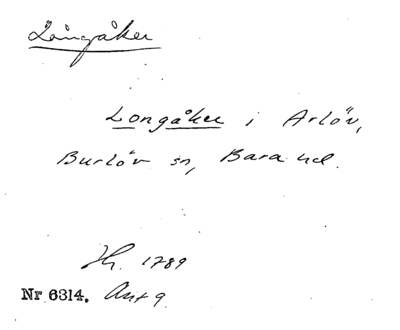 Långåker
Longåker i Arlöv,
Burlöv sn, Bara hd.
Hr. 1789
Nr 6314. Ant 9